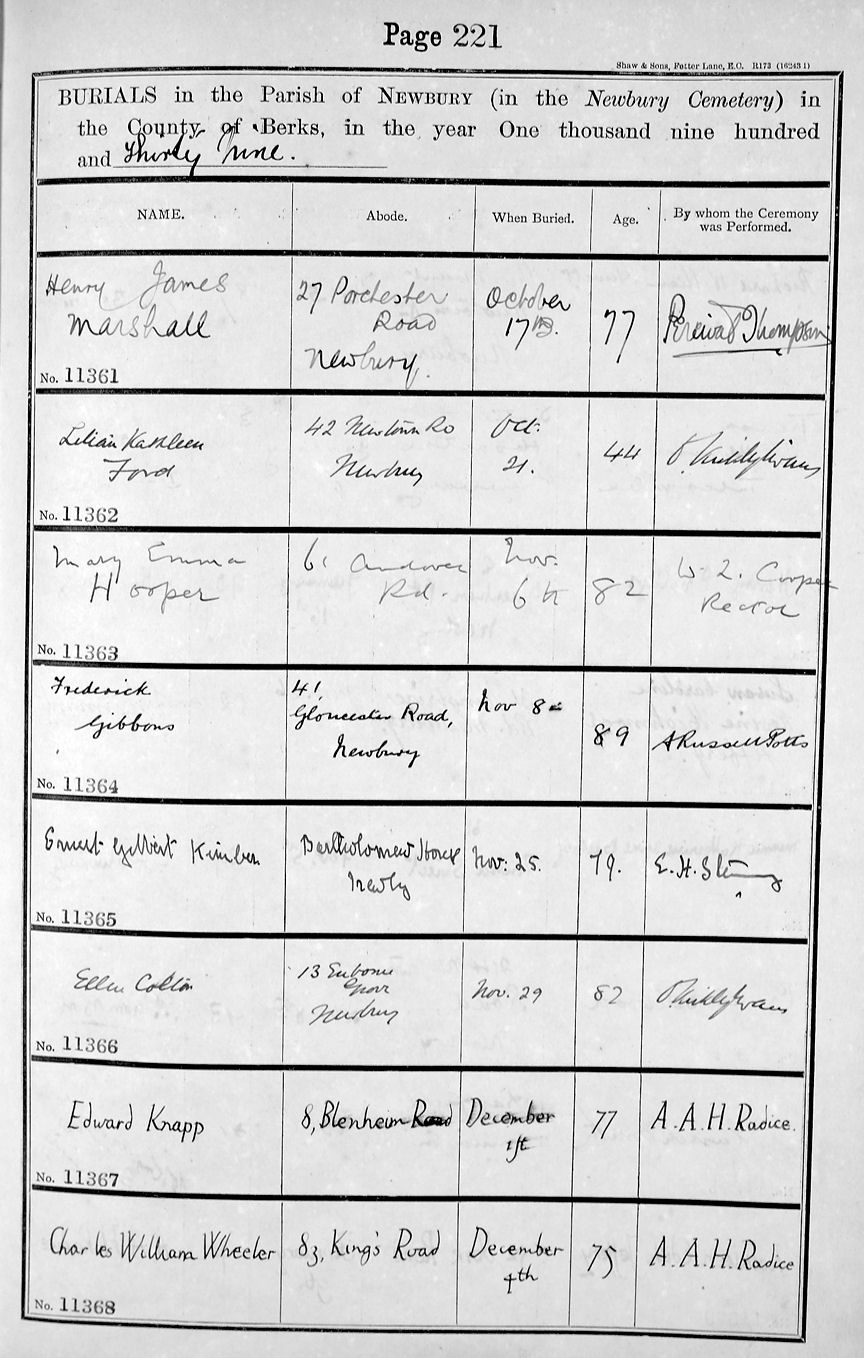 Page 221
Shaw & Sons, Fetter Lane, E.C. R173 (16243 1)
BURIALS in the Parish of NEWBURY (in the Newbury Cemetery) in
the County of Berks, in the year One thousand nine hundred
and Thirty Nine.
NAME. Abode. When Buried. Age. By whom the Ceremony was Performed.
Henry James
Marshall
No. 11361
27 Porchester
Road
Newbury.
October
17th.
77
Percival Thompson
Lilian Kathleen
Ford
No. 11362
42 Newtown Rd
Newbury
Oct.
21.
44
Mary Emma
Hooper
No. 11363
61 Andover
Rd.
Nov.
6th
82
W. L. Cooper
Rector
Frederick
Gibbons
No. 11364
41,
Gloucester Road,
Newbury
Nov 8
89
A Russell Potts
Ernest Gilbert Kimber
No. 11365
Bartholomew
Newby
Nov: 25.
79.
E. H.
Ellen Colton
No. 11366
13 Enborne
Grove
Newbury
Nov. 29
82
Edward Knapp
No. 11367
8, Blenheim Road
December
1st
77
A. A. H. Radice.
Charles William Wheeler
No. 11368
83, King's Road
December
4th
75
A. A. H. Radice